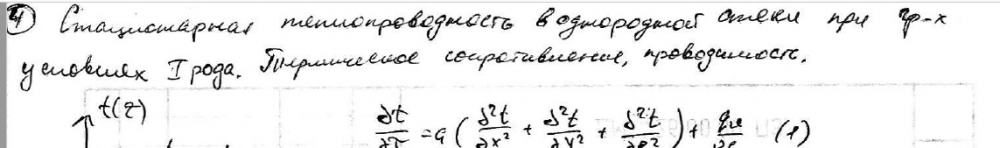 4) Стационарная теплопроводность в однородной стенки при гр-х
условиях I рода. Термическое сопротивление, проводимость.
t(τ) ∂t/∂τ = a (∂²t/∂x² + ∂²t/∂y² + ∂²t/∂z²) + qv/ρc (1)